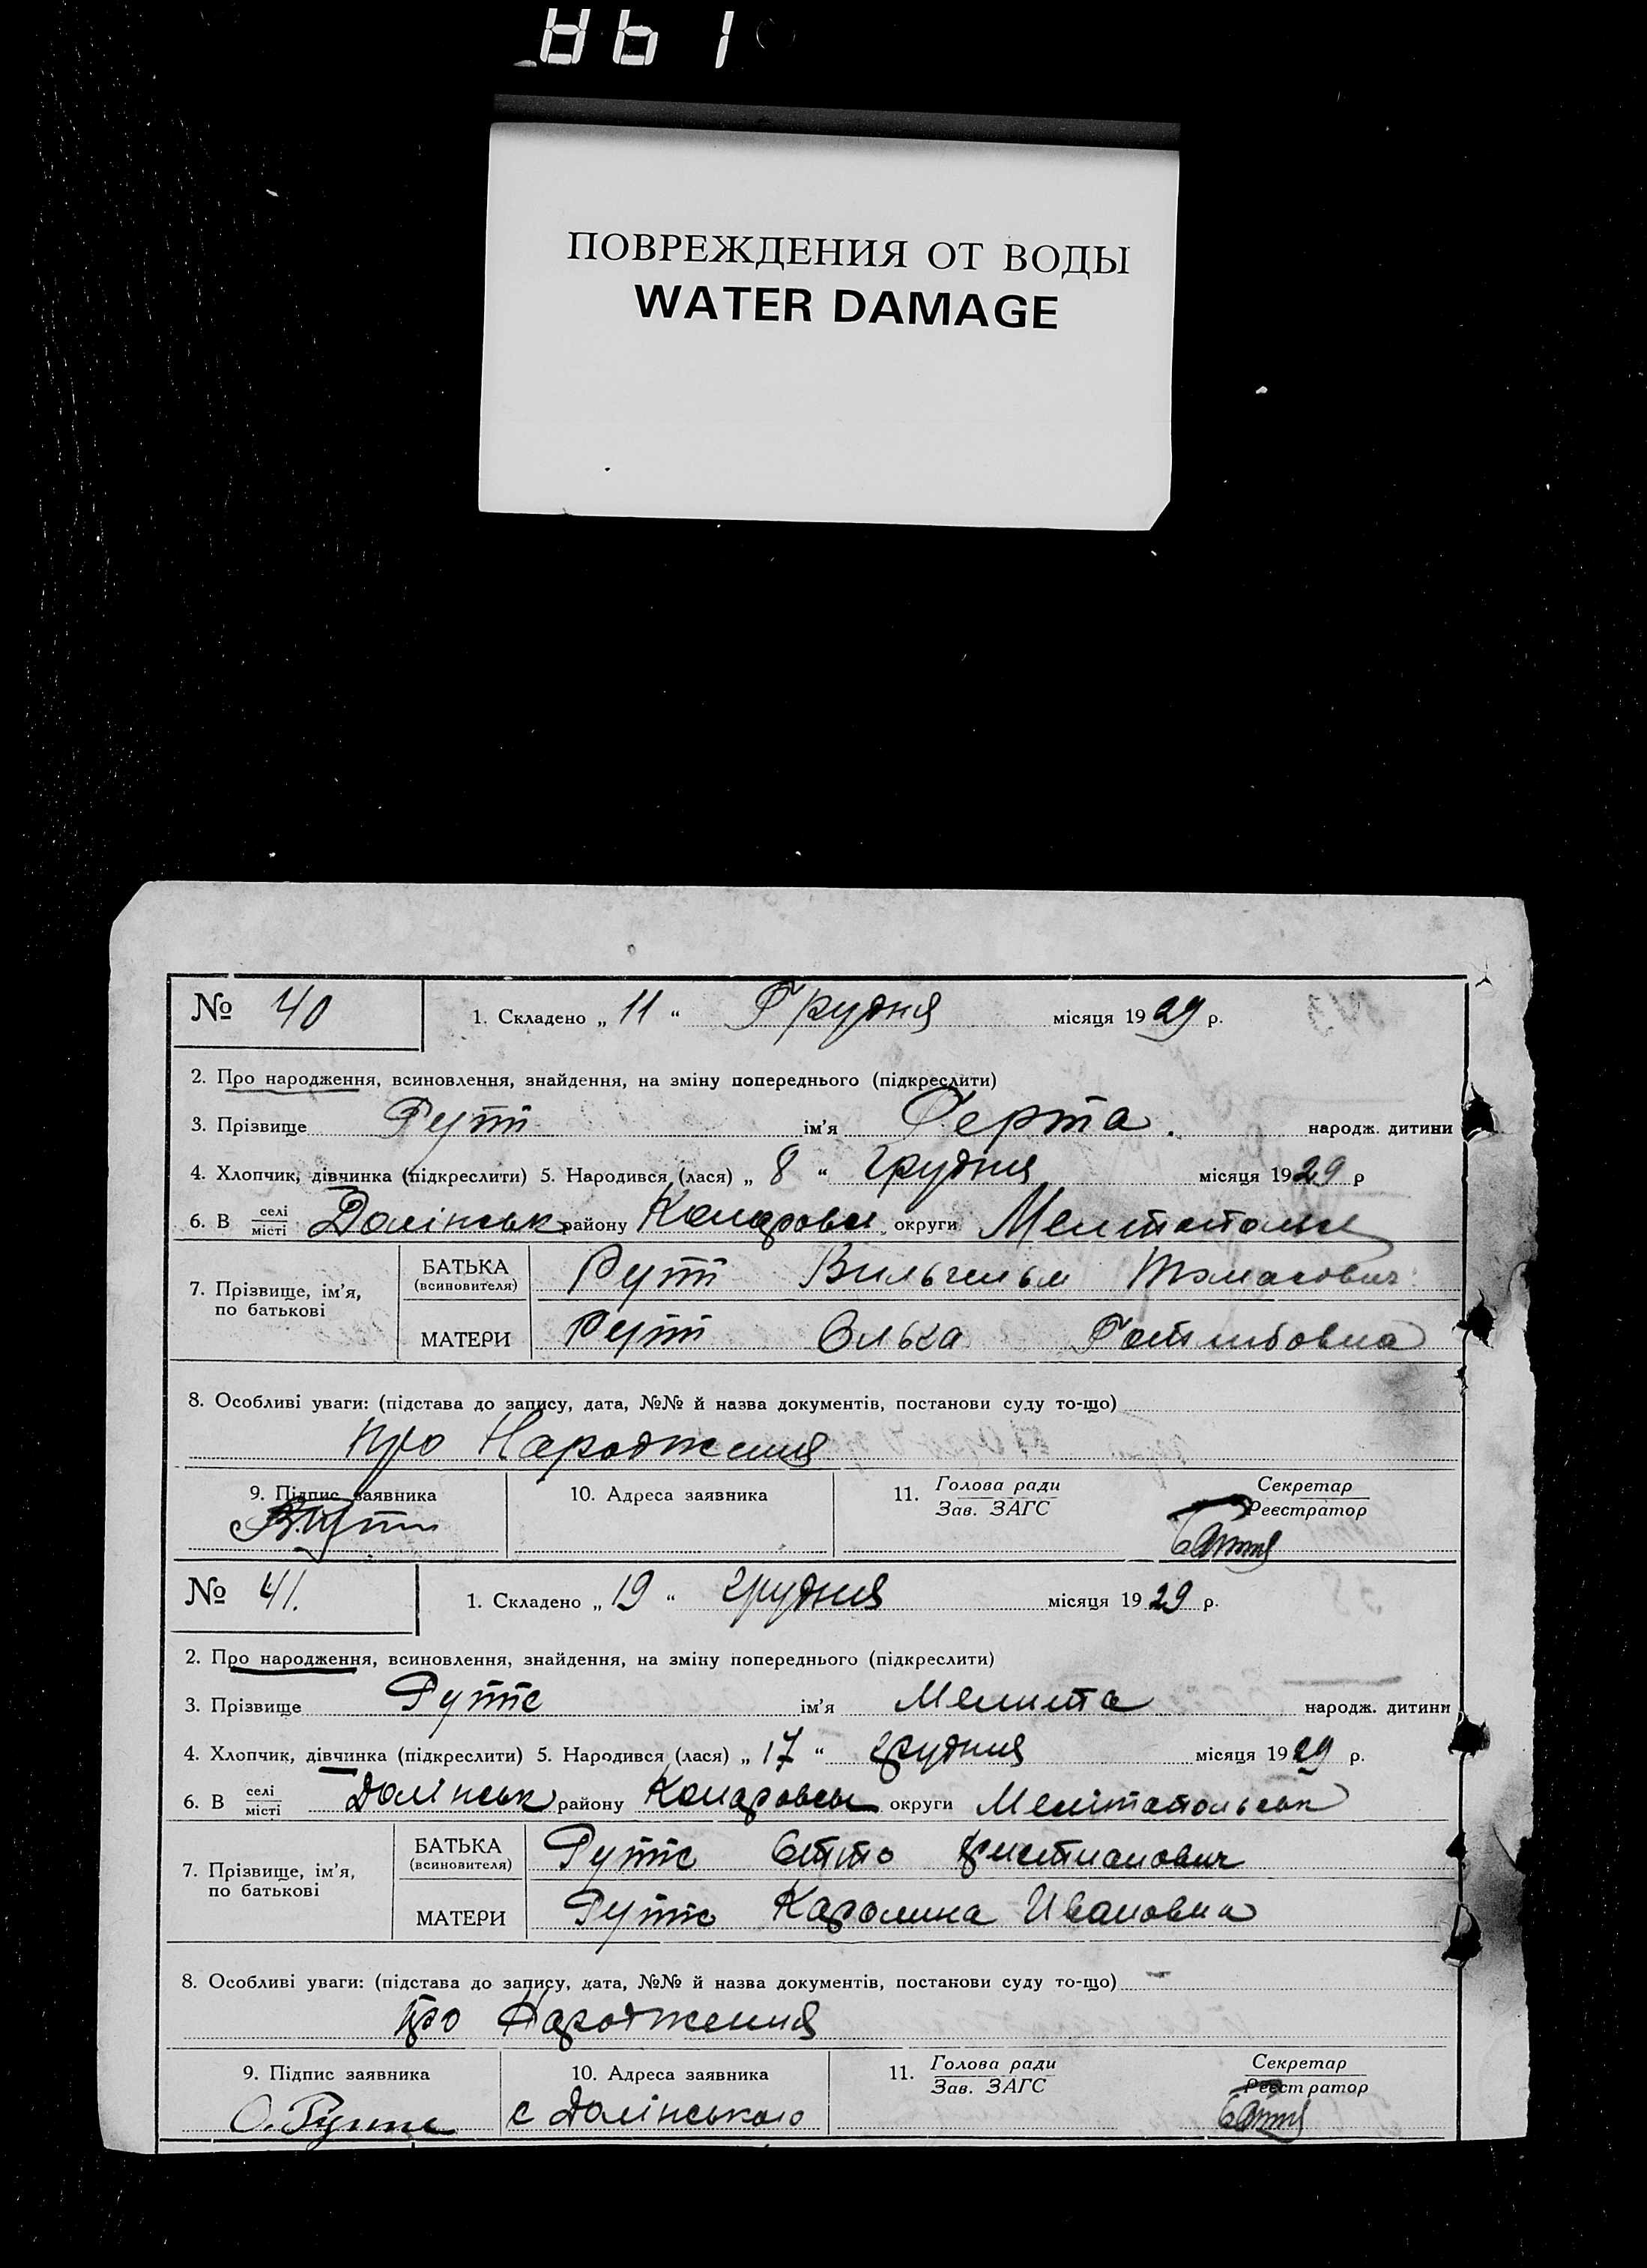 ПОВРЕЖДЕНИЯ ОТ ВОДЫ
WATER DAMAGE
№ 40
1. Складено „ 11 “ Грудня місяця 1929 р.
2. Про народження, всиновлення, знайдення, на зміну попереднього (підкреслити)
3. Прізвище Рутт ім’я Герта. народж. дитини
4. Хлопчик, дівчинка (підкреслити) 5. Народився (лася) „ 8 “ грудня місяця 1929 р
6. В селі місті Долінськ району округи
7. Прізвище, ім’я, по батькові
БАТЬКА (всиновителя) Рутт Вильгельм Томасович
МАТЕРИ Рутт Готлибовна
8. Особливі уваги: (підстава до запису, дата, №№ й назва документів, постанови суду то-що)
про Народження
9. Підпис заявника 10. Адреса заявника 11. Голова ради Зав. ЗАГС Секретар Реєстратор
№ 41.
1. Складено „ 19 “ грудня місяця 1929 р.
2. Про народження, всиновлення, знайдення, на зміну попереднього (підкреслити)
3. Прізвище Гутте ім’я Мелита народж. дитини
4. Хлопчик, дівчинка (підкреслити) 5. Народився (лася) „ 17 “ грудня місяця 1929 р.
6. В селі місті Долінськ району округи Мелітопольськ
7. Прізвище, ім’я, по батькові
БАТЬКА (всиновителя) Гутте Отто
МАТЕРИ Гутте Каролина Ивановна
8. Особливі уваги: (підстава до запису, дата, №№ й назва документів, постанови суду то-що)
про Народження
9. Підпис заявника 10. Адреса заявника 11. Голова ради Зав. ЗАГС Секретар Реєстратор
О. Гутте с Долінського